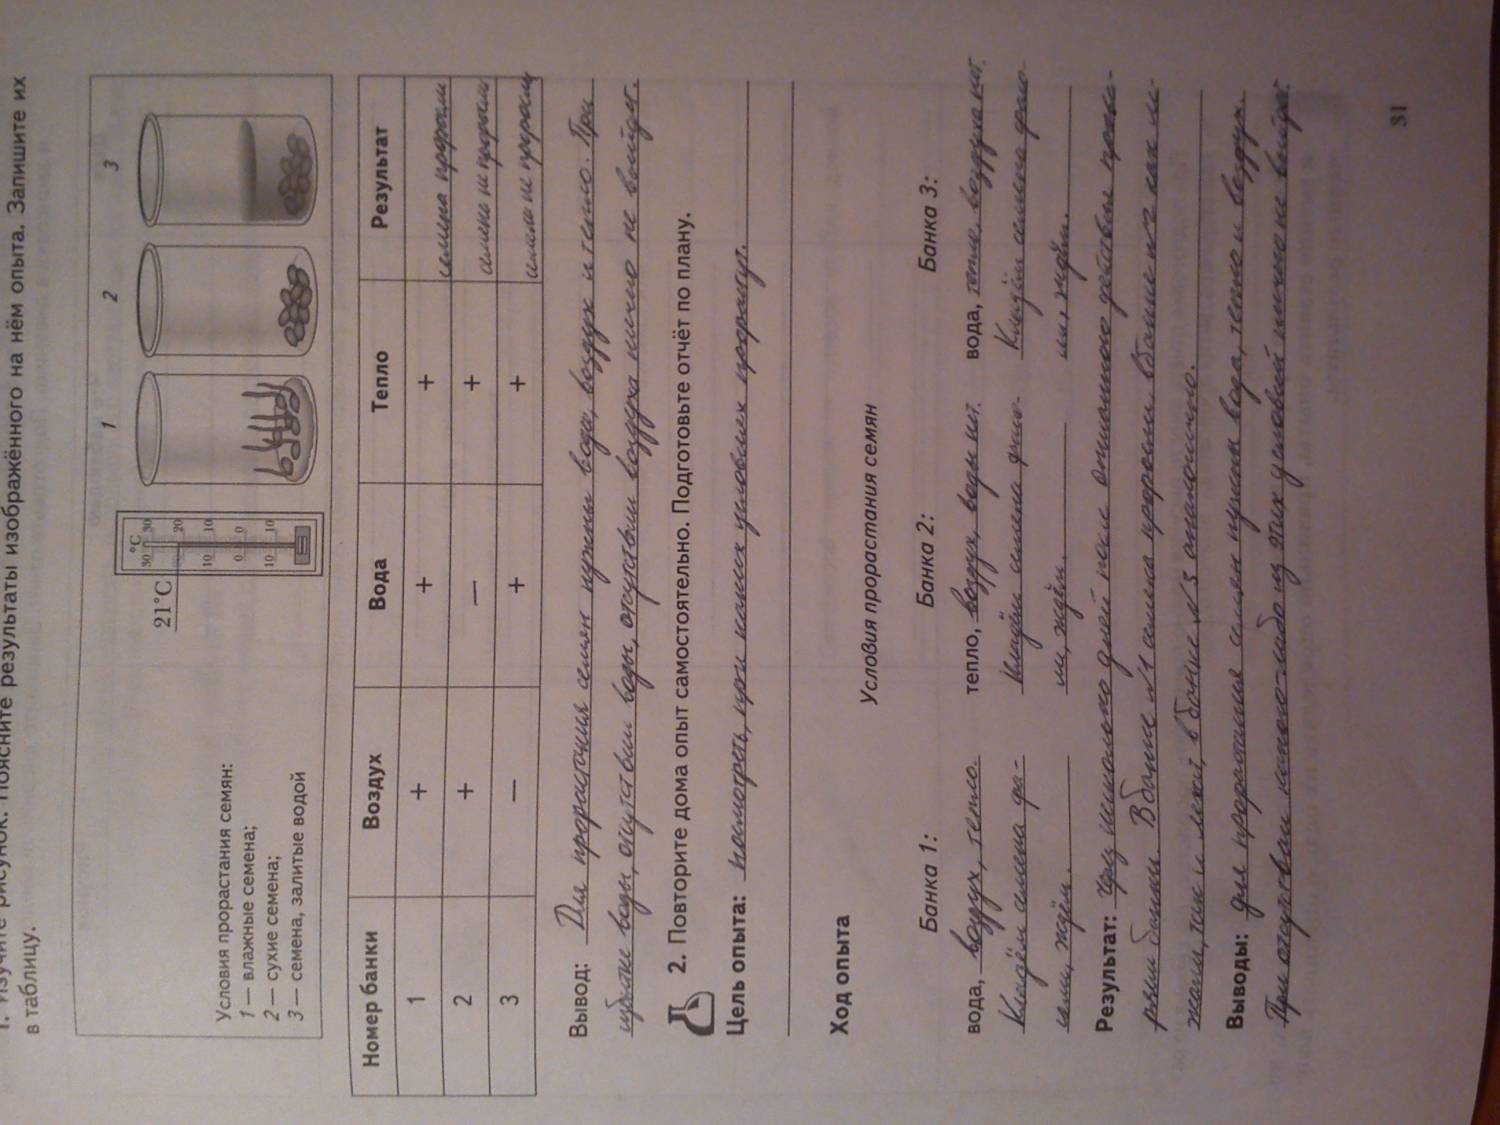 1. Изучите рисунок. Поясните результаты изображённого на нём опыта. Запишите их
в таблицу.
1 2 3
21°C
°C
30 30
20
10 10
0 0
10 10
Условия прорастания семян:
1 — влажные семена;
2 — сухие семена;
3 — семена, залитые водой
Номер банки Воздух Вода Тепло Результат
1 + + + семена проросли
2 + — + семена не проросли
3 — + + семена не проросли
Вывод: Для прорастания семян нужны вода, воздух и тепло. При
избытке воды, отсутствии воды, отсутствии воздуха ничего не выйдет.
2. Повторите дома опыт самостоятельно. Подготовьте отчёт по плану.
Цель опыта: посмотреть, при каких условиях прорастут.
Ход опыта
Условия прорастания семян
Банка 1: Банка 2: Банка 3:
вода, воздух, тепло. тепло, воздух, воды нет. вода, тепло, воздуха нет.
Кладём семена Кладём семена Кладём семена
ждём. ждём. ждём.
Результат: через несколько дней после
банки. В банке №1 семена проросли, в банке №2 как ле-
жали, так и лежат, в банке №3 аналогично.
Выводы: для прорастания семян нужны вода, тепло и воздух.
При отсутствии чего-либо из этих условий ничего не выйдет.
31